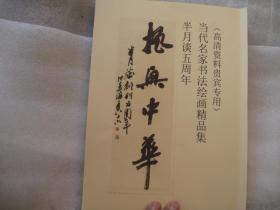 《高清资料贵宾专用》
当代名家书法绘画精品集
半月谈五周年
振兴中华
半月谈创刊五周年